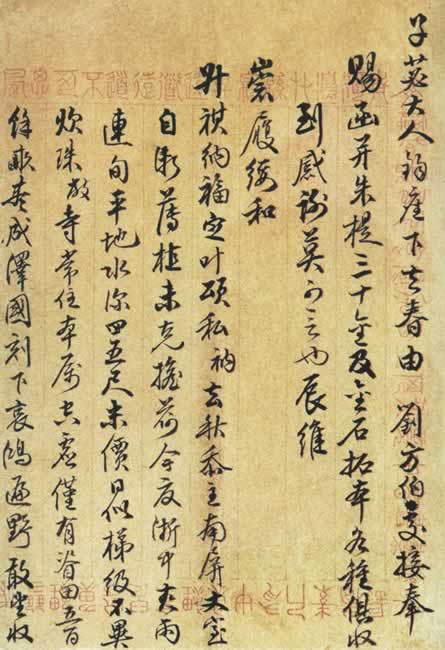 子苾大人鈞座下去春由 劉方伯處接奉
賜函并朱提三十金及金石拓本各種俱收
到感謝莫可言也辰維
崇履綏和
升祺納福定叶頌私衲去秋忝主南屏大室
自慚薄植未克擔荷今夏浙中大雨
連旬平地水深四五尺米價日似梯級不異
炊珠敝寺常住本属空虛僅有脊田五百
餘畝 成澤國刻下哀鴻遍野敢望收